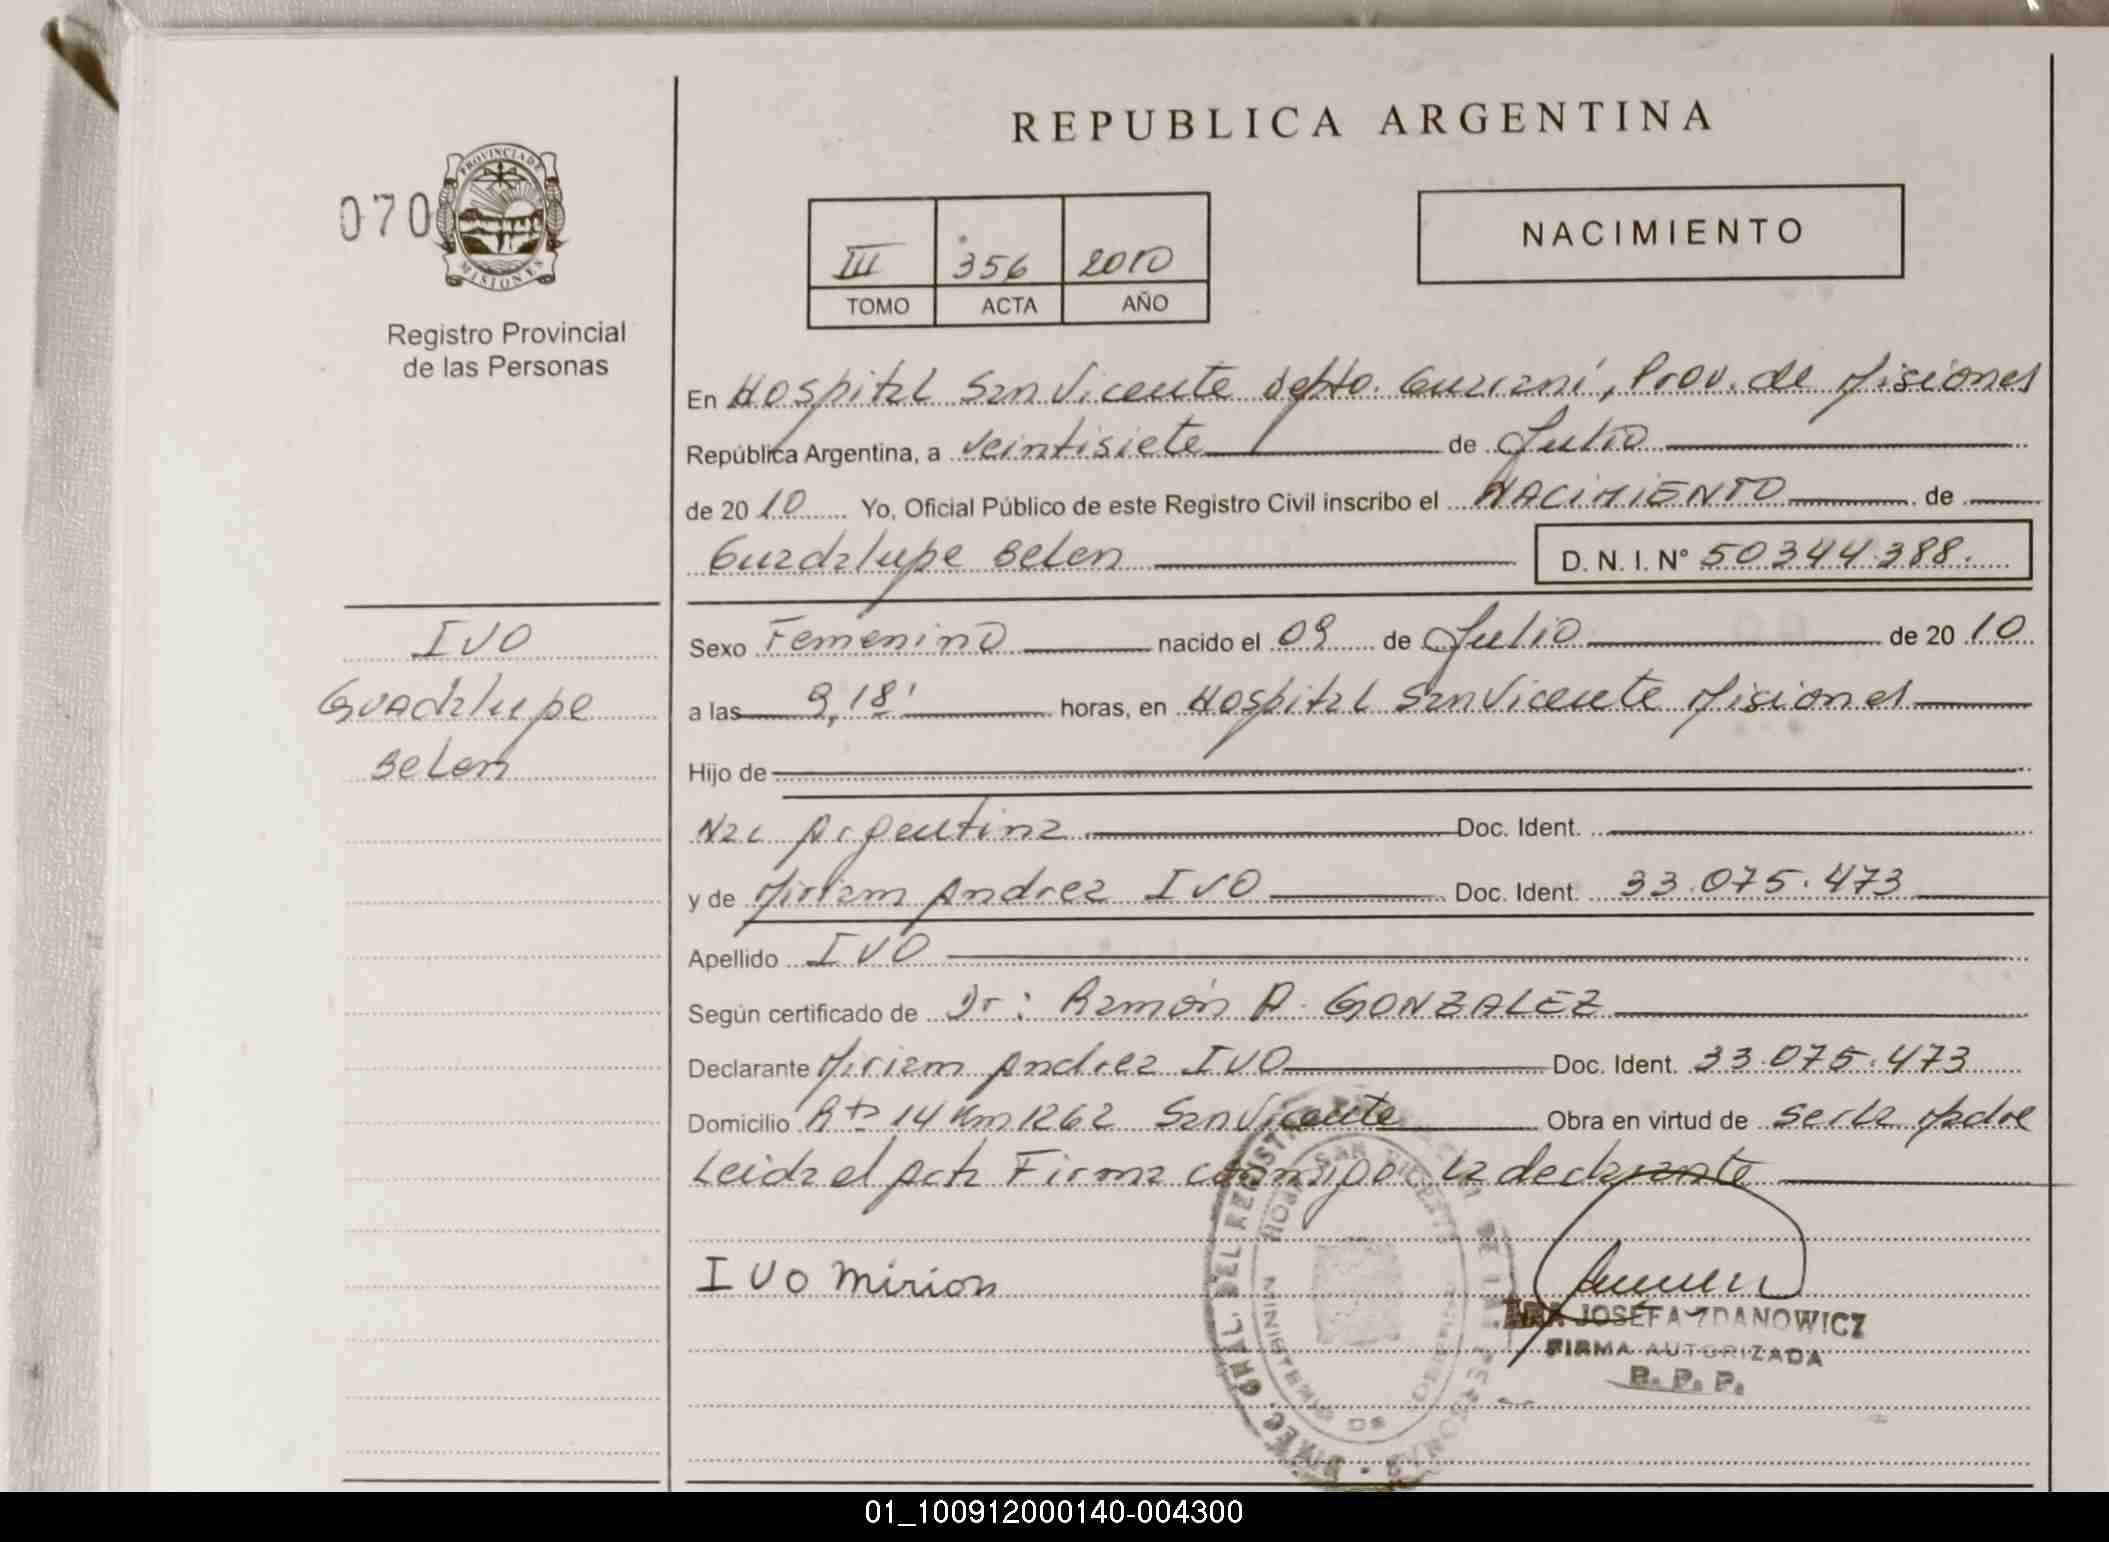 REPUBLICA ARGENTINA
070
PROVINCIA DE
MISIONES
Registro Provincial
de las Personas
III 356 2010
TOMO ACTA AÑO
NACIMIENTO
En Hospital San Vicente Depto. Guarani, Prov. de Misiones
República Argentina, a veintisiete de Julio
de 2010 Yo, Oficial Público de este Registro Civil inscribo el NACIMIENTO de
Guadalupe Belen D. N. I. N° 50344388.
IVO
Guadalupe
Belen
Sexo Femenino nacido el 09 de Julio de 2010
a las 9,18' horas, en Hospital San Vicente Misiones
Hijo de
Nac Argentina Doc. Ident.
y de Miriam Andrea IVO Doc. Ident. 33.075.473
Apellido IVO
Según certificado de Dr: Ramón A. GONZALEZ
Declarante Miriam Andrea IVO Doc. Ident. 33.075.473
Domicilio Rta 14 Km 1262 San Vicente Obra en virtud de serla Madre
Leida el Acta Firma conmigo la declarante
IVO Mirion
JOSEFA ZDANOWICZ
FIRMA AUTORIZADA
R. P. P.
DIREC. GRAL. DEL REGISTRO DE LAS PERSONAS
HOSP. SAN VICENTE
MINISTERIO DE GOBIERNO
01_100912000140-004300